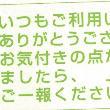 いつもご利用い
ありがとうござ
お気付きの点が
ましたら、
ご一報くださ